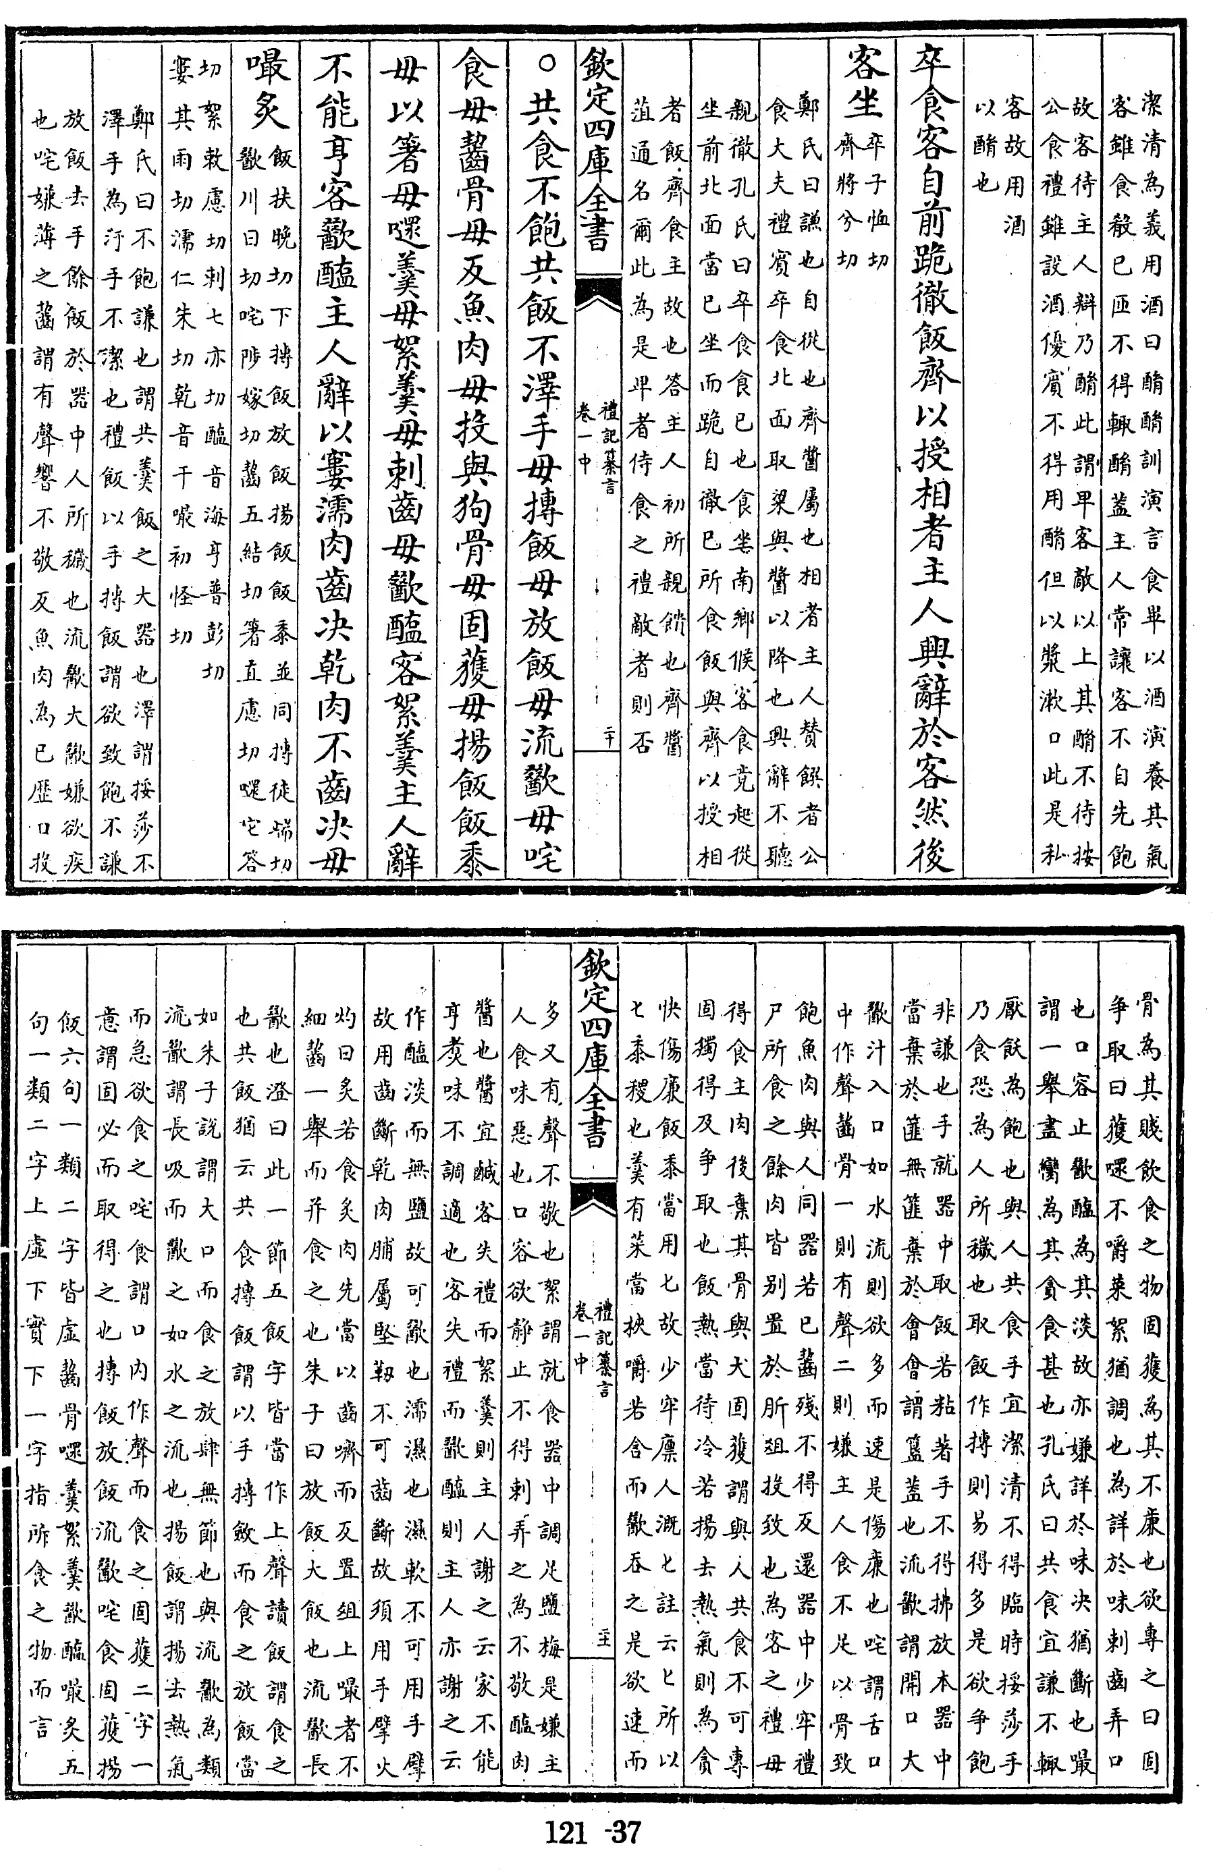 潔清為義用酒曰酳酳訓演言食畢以酒演養其氣
客雖食殽已匝不得輒酳蓋主人常讓客不自先飽
故客待主人辯乃酳此謂卑客敵以上其酳不待按
公食禮雖設酒優賓不得用酳但以漿漱口此是私
客故用酒
以酳也
卒食客自前跪徹飯齊以授相者主人興辭於客然後
客坐
卒子恤切
齊將兮切
鄭氏曰謙也自從也齊醬屬也相者主人贊饌者公
食大夫禮賓卒食北面取梁與醬以降也興辭不聽
親徹孔氏曰卒食食已也食坐南鄉候客食竟起從
坐前北面當已坐而跪自徹已所食飯與齊以授相
者飯齊食主故也答主人初所親饋也齊醬
菹通名爾此為是卑者侍食之禮敵者則否
欽定四庫全書
禮記纂言
卷一中
二十
○共食不飽共飯不澤手毋摶飯毋放飯毋流歠毋咤
食毋齧骨毋反魚肉毋投與狗骨毋固獲毋揚飯飯黍
毋以箸毋嚃羹毋絮羹毋刺齒毋歠醢客絮羹主人辭
不能亨客歠醢主人辭以窶濡肉齒決乾肉不齒決毋
嘬炙
飯扶晚切下摶飯放飯揚飯飯黍並同摶徒端切
歠川曰切咤陟嫁切齧五結切箸直慮切嚃它答
切絮敕慮切刺七亦切醢音海亨普彭切
窶其雨切濡仁朱切乾音干嘬初怪切
鄭氏曰不飽謙也謂共羹飯之大器也澤謂挼莎不
澤手為汙手不潔也禮飯以手摶飯謂欲致飽不謙
放飯去手餘飯於器中人所穢也流歠大歠嫌欲疾
也咤嫌薄之齧謂有聲響不敬反魚肉為已歷口投
骨為其賤飲食之物固獲為其不廉也欲專之曰固
爭取曰獲嚃不嚼菜絮猶調也為詳於味刺齒弄口
也口容止歠醢為其淡故亦嫌詳於味決猶斷也嘬
謂一舉盡臠為其貪食甚也孔氏曰共食宜謙不輒
厭飫為飽也與人共食手宜潔清不得臨時挼莎手
乃食恐為人所穢也取飯作摶則易得多是欲爭飽
非謙也手就器中取飯若粘著手不得拂放本器中
當棄於篚無篚棄於會會謂簋蓋也流歠謂開口大
歠汁入口如水流則欲多而速是傷廉也咤謂舌口
中作聲齧骨一則有聲二則嫌主人食不足以骨致
飽魚肉與人同器若已齧殘不得反還器中少牢禮
尸所食之餘肉皆別置於肵俎投致也為客之禮毋
得食主肉後棄其骨與犬固獲謂與人共食不可專
固獨得及爭取也飯熱當待冷若揚去熱氣則為貪
快傷廉飯黍當用匕故少牢廪人溉匕註云匕所以
匕黍稷也羹有菜當挾嚼若含而歠吞之是欲速而
欽定四庫全書
禮記纂言
卷一中
主
多又有聲不敬也絮謂就食器中調足鹽梅是嫌主
人食味惡也口容欲靜止不得刺弄之為不敬醢肉
醬也醬宜鹹客失禮而絮羹則主人謝之云家不能
亨煑味不調適也客失禮而歠醢則主人亦謝之云
作醢淡而無鹽故可歠也濡濕也濕軟不可用手擘
故用齒斷乾肉脯屬堅韌不可齒斷故須用手擘火
灼曰炙若食炙肉先當以齒嚌而反置俎上嘬者不
細齧一舉而并食之也朱子曰放飯大飯也流歠長
歠也澄曰此一節五飯字皆當作上聲讀飯謂食之
也共飯猶云共食摶飯謂以手摶斂而食之放飯當
如朱子說謂大口而食之放肆無節也與流歠為類
流歠謂長吸而歠之如水之流也揚飯謂揚去熱氣
而急欲食之咤食謂口內作聲而食之固獲二字一
意謂固必而取得之也摶飯放飯流歠咤食固獲揚
飯六句一類二字皆虛齧骨嚃羹絮羹歠醢嘬炙五
句一類二字上虛下實下一字指所食之物而言
121-37